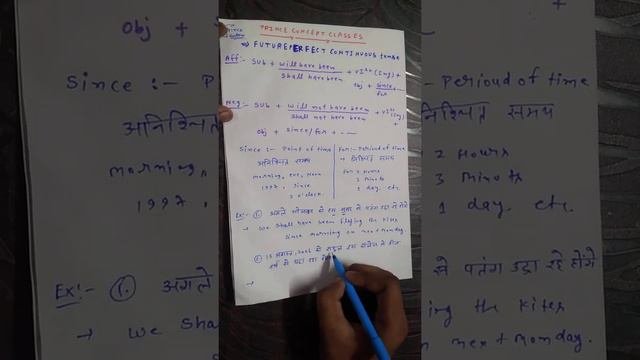 PRINCE CONCEPT CLASSES
⇒ FUTURE PERFECT CONTINUOUS tense
Aff:- Sub + will have been / shall have been + v1st (ing) +
obj + since / for
Neg:- Sub + will not have been / shall not have been + v1st (ing) +
obj + since/for + ---
Since :- Point of time
अनिश्चित समय
morning, eve, noon
1997, since
2 o'clock.
For:- Perioud of time
→ निश्चित समय
For 2 Hours
3 minots
1 day. etc.
Ex:- ①. अगले सोमवार को हम सुबह से पतंग उड़ा रहे होंगे
→ We shall have been flying the kites
since morning on next monday.
② 15 अगस्त, से
वर्ष से पढ़ा रहा
→
obj +
Since :- P
अनिश्चित
morning,
1997,
Ex:- ①. अगले
→ We sha
Perioud of time
निश्चित समय
2 Hours
3 minots
1 day. etc.
से पतंग उड़ा रहे होंगे
ing the kites
n next monday.